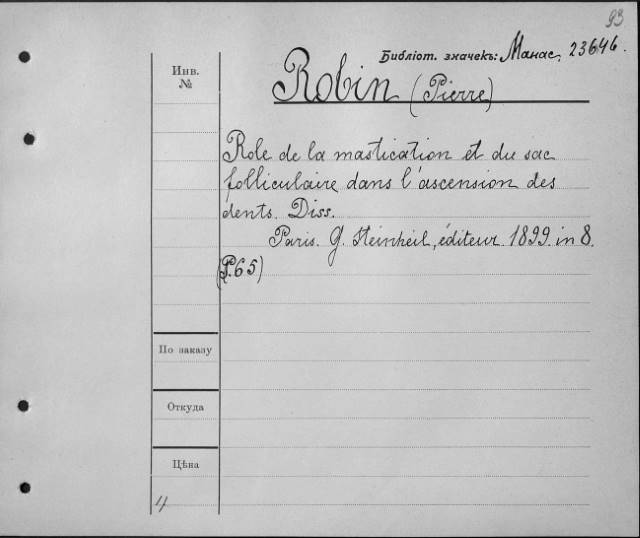 93
Библіот. значекъ: Манас. 23646.
Инв.
№
Robin (Pierre)
Role de la mastication et du sac
folliculaire dans l'ascension des
dents. Diss.
Paris. G. Steinheil, éditeur. 1899. in 8.
(P. 65)
По заказу
Откуда
Цѣна
4